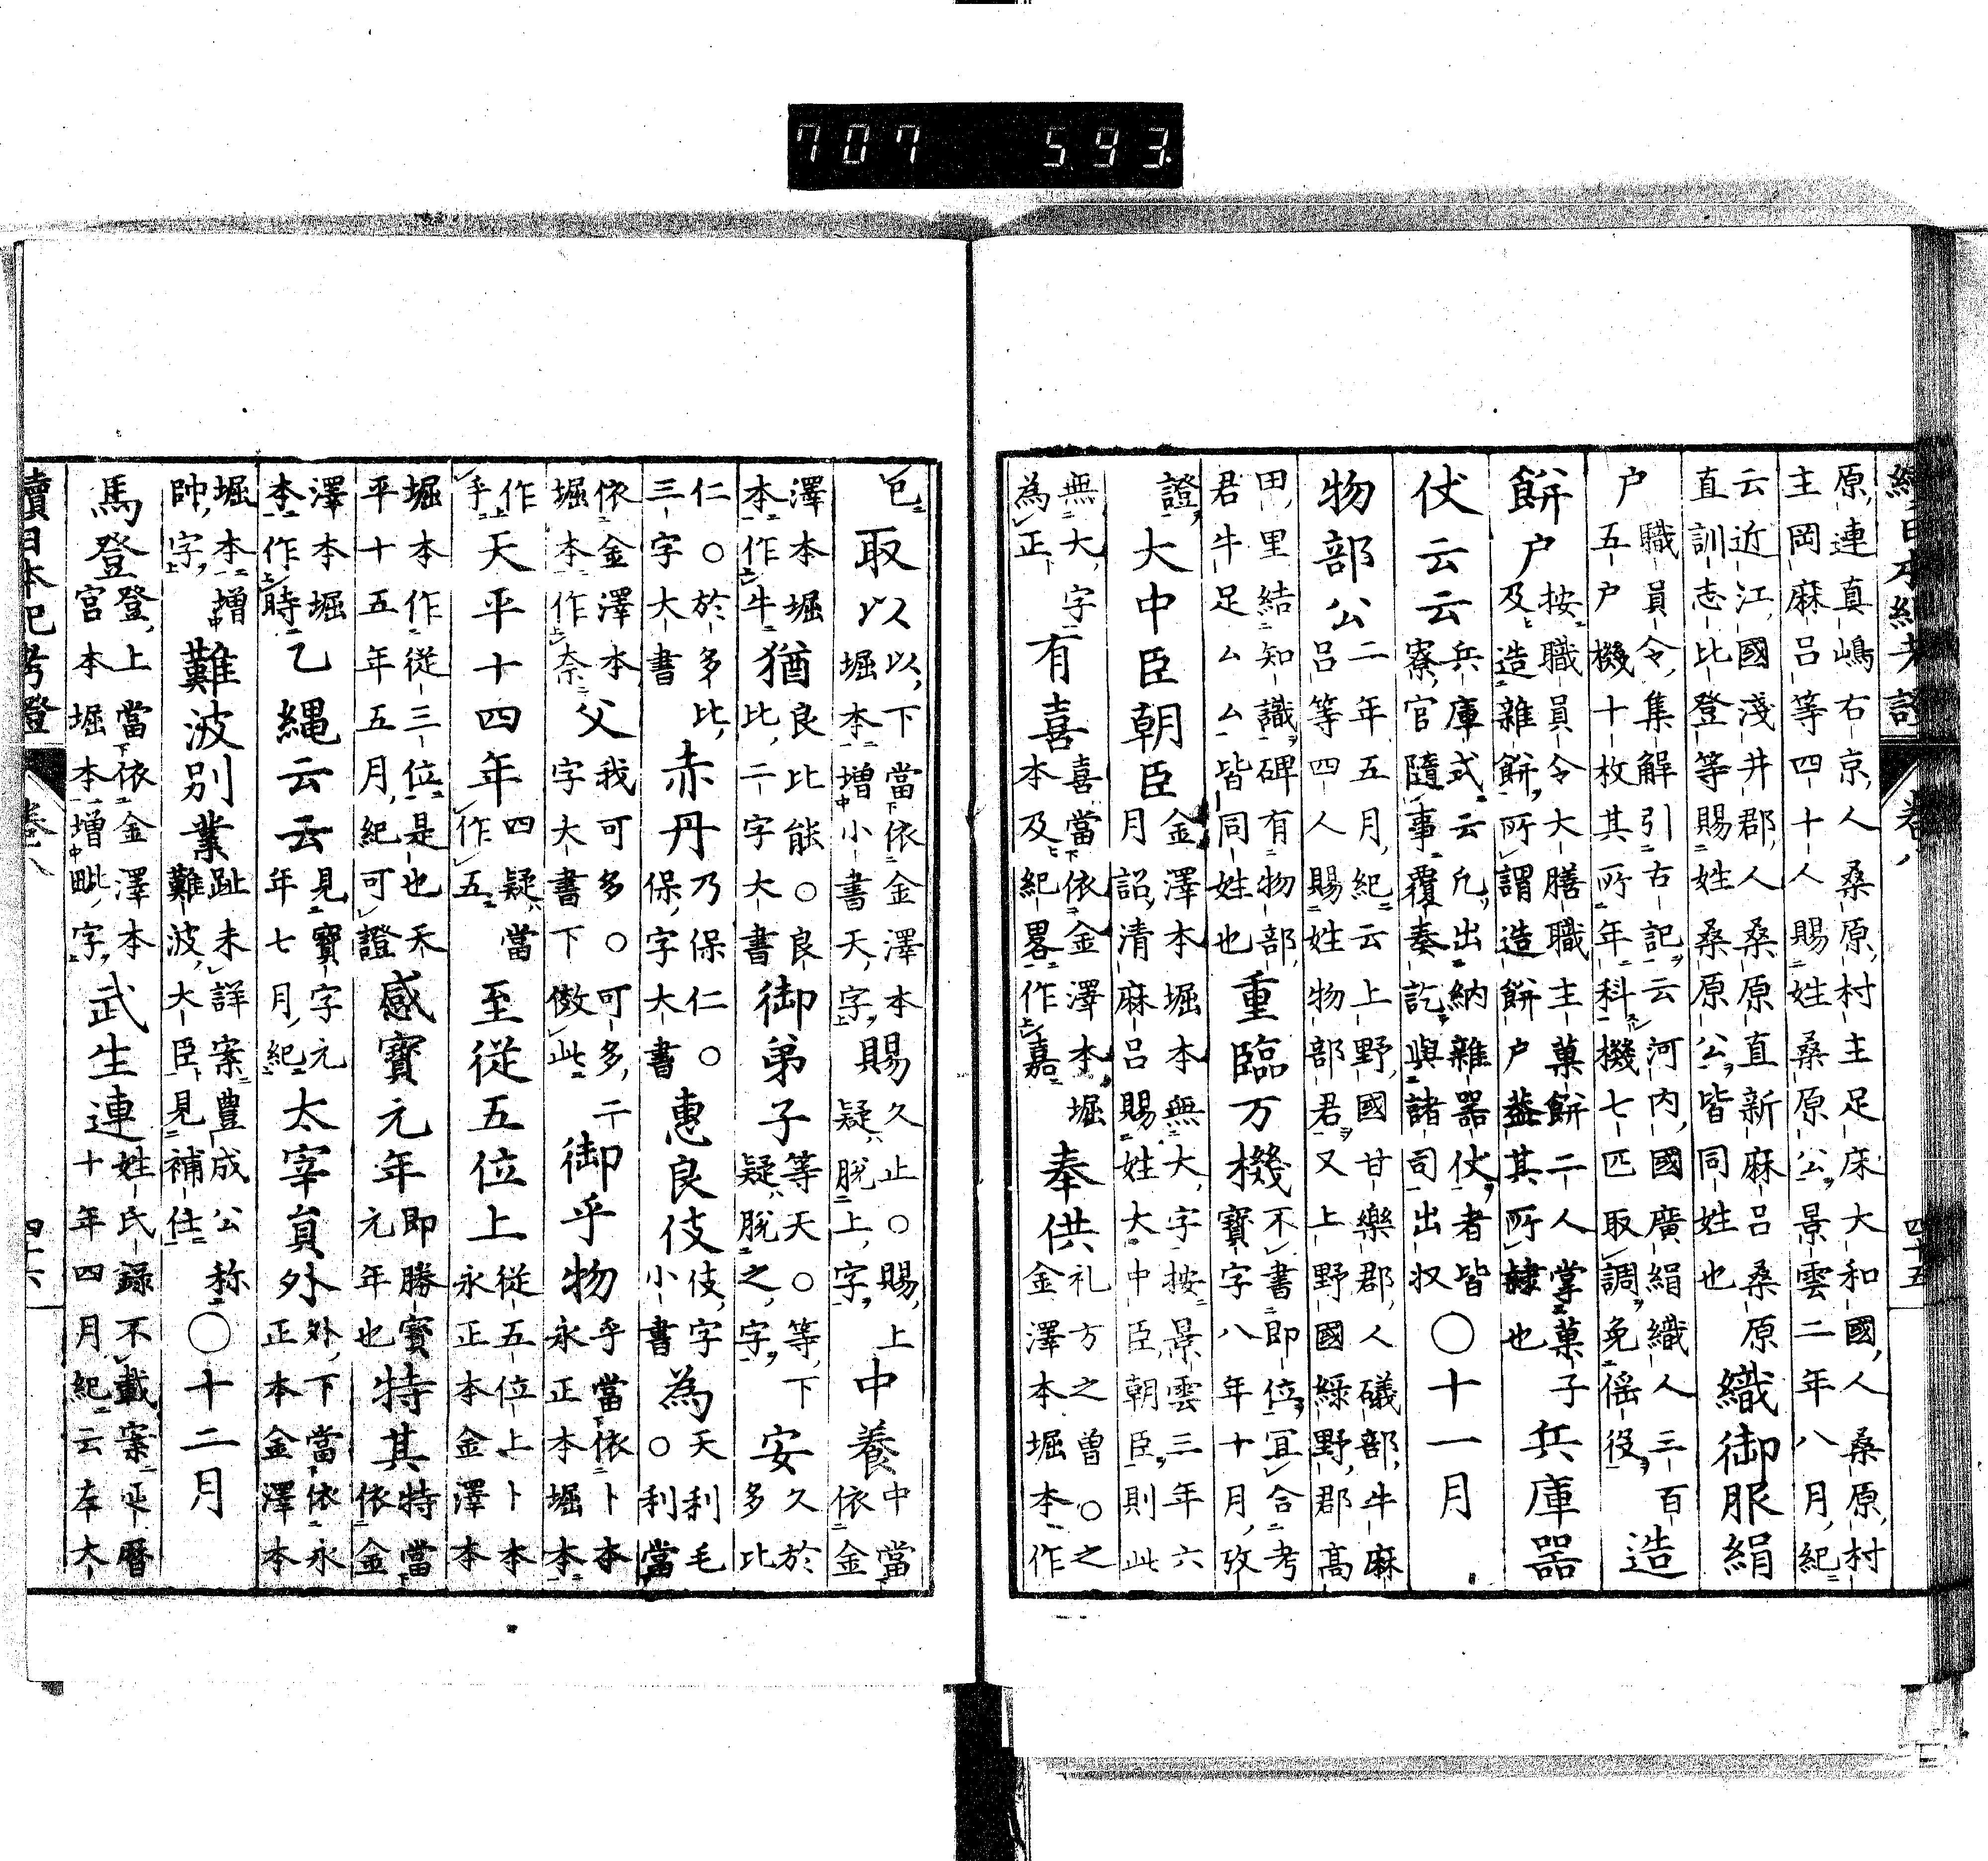 707 593
續日本紀考證 卷八 四十五
原連真嶋右京人桑原村主足床大和國人桑原村
主岡麻呂等四十人賜姓桑原公景雲二年八月紀
云近江國淺井郡人桑原直新麻呂桑原
直訓志比登等賜姓桑原公皆同姓也
織御服絹
戶
職員令集解引古記云河內國廣絹織人三百
五戶機十枚其所年科機七匹取調免徭役
造
餅戶
按職員令大膳職主菓餅二人掌菓子
及造雜餅所謂造餅戶蓋其所隸也
兵庫器
仗云云
兵庫式云凡出納雜器仗者皆
寮官隨事覆奏訖與諸司出收
○十一月
物部公
二年五月紀云上野國甘樂郡人礒部牛麻
呂等四人賜姓物部君又上野國綠野郡高
田里結知識碑有物部
君牛足厶厶皆同姓也
重臨万機
不書即位冝合考
寶字八年十月攷
證
大中臣朝臣
金澤本堀本無大字按景雲三年六
月詔清麻呂賜姓大中臣朝臣則此
無大字
為正
有喜
喜當依金澤本堀
本及紀畧作嘉
奉供
礼方之曽○之
金澤本堀本作
㔾
取以
以下當依金澤本
堀本增小書天字
賜
久止○賜上
疑脫上字
中養
中當
依金
澤本堀
本作牛
猶
良比能○良
比二字大書
御弟子
等天○等下
疑脫之字
安
久於
多比
仁○於多比
三字大書
赤丹
乃保仁○
保字大書
惠良伎
伎字
小書
為
天利毛
○利當
依金澤本
堀本作奈
父
我可多○可多二
字大書下倣此
御乎物
乎當依卜本
永正本堀本
作
乎
天平十四年
四疑當
作五
至從五位上
從五位上卜本
永正本金澤本
堀本作從三位是也天
平十五年五月紀可證
感寶元年
即勝寶
元年也
特其
特當
依金
澤本堀
本作時
乙縄云云
見寶字元
年七月紀
太宰員外
外下當依永
正本金澤本
堀本增
帥字
難波別業
趾未詳案豊成公称
難波大臣見補任
○十二月
馬登
登上當依金澤本
宮本堀本增毗字
武生連
姓氏録不載案延曆
十年四月紀云本大
續日本紀考證 卷八 四十六